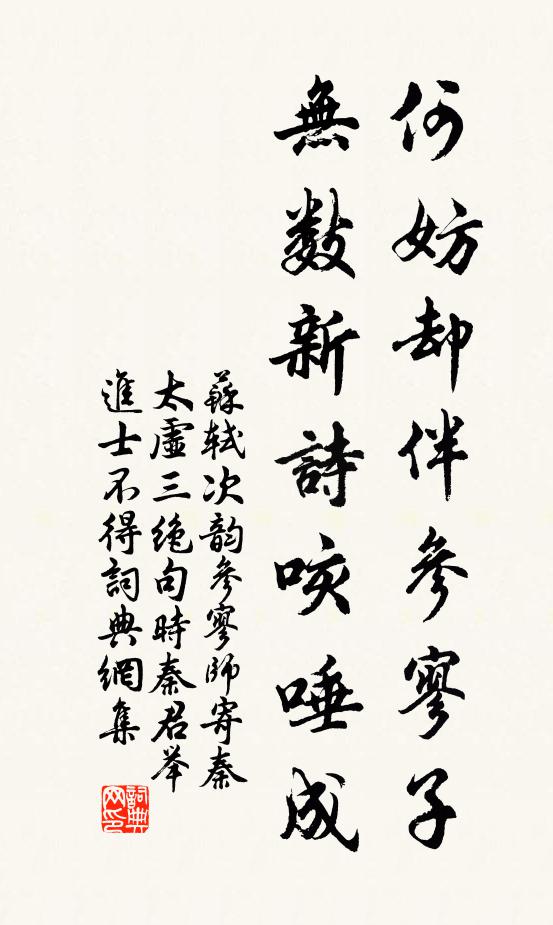 何妨却伴參寥子
無數新詩咳唾成
蘇軾次韵參寥師寄秦
太虛三绝句時秦君举
進士不得詞典網集
詞典网印